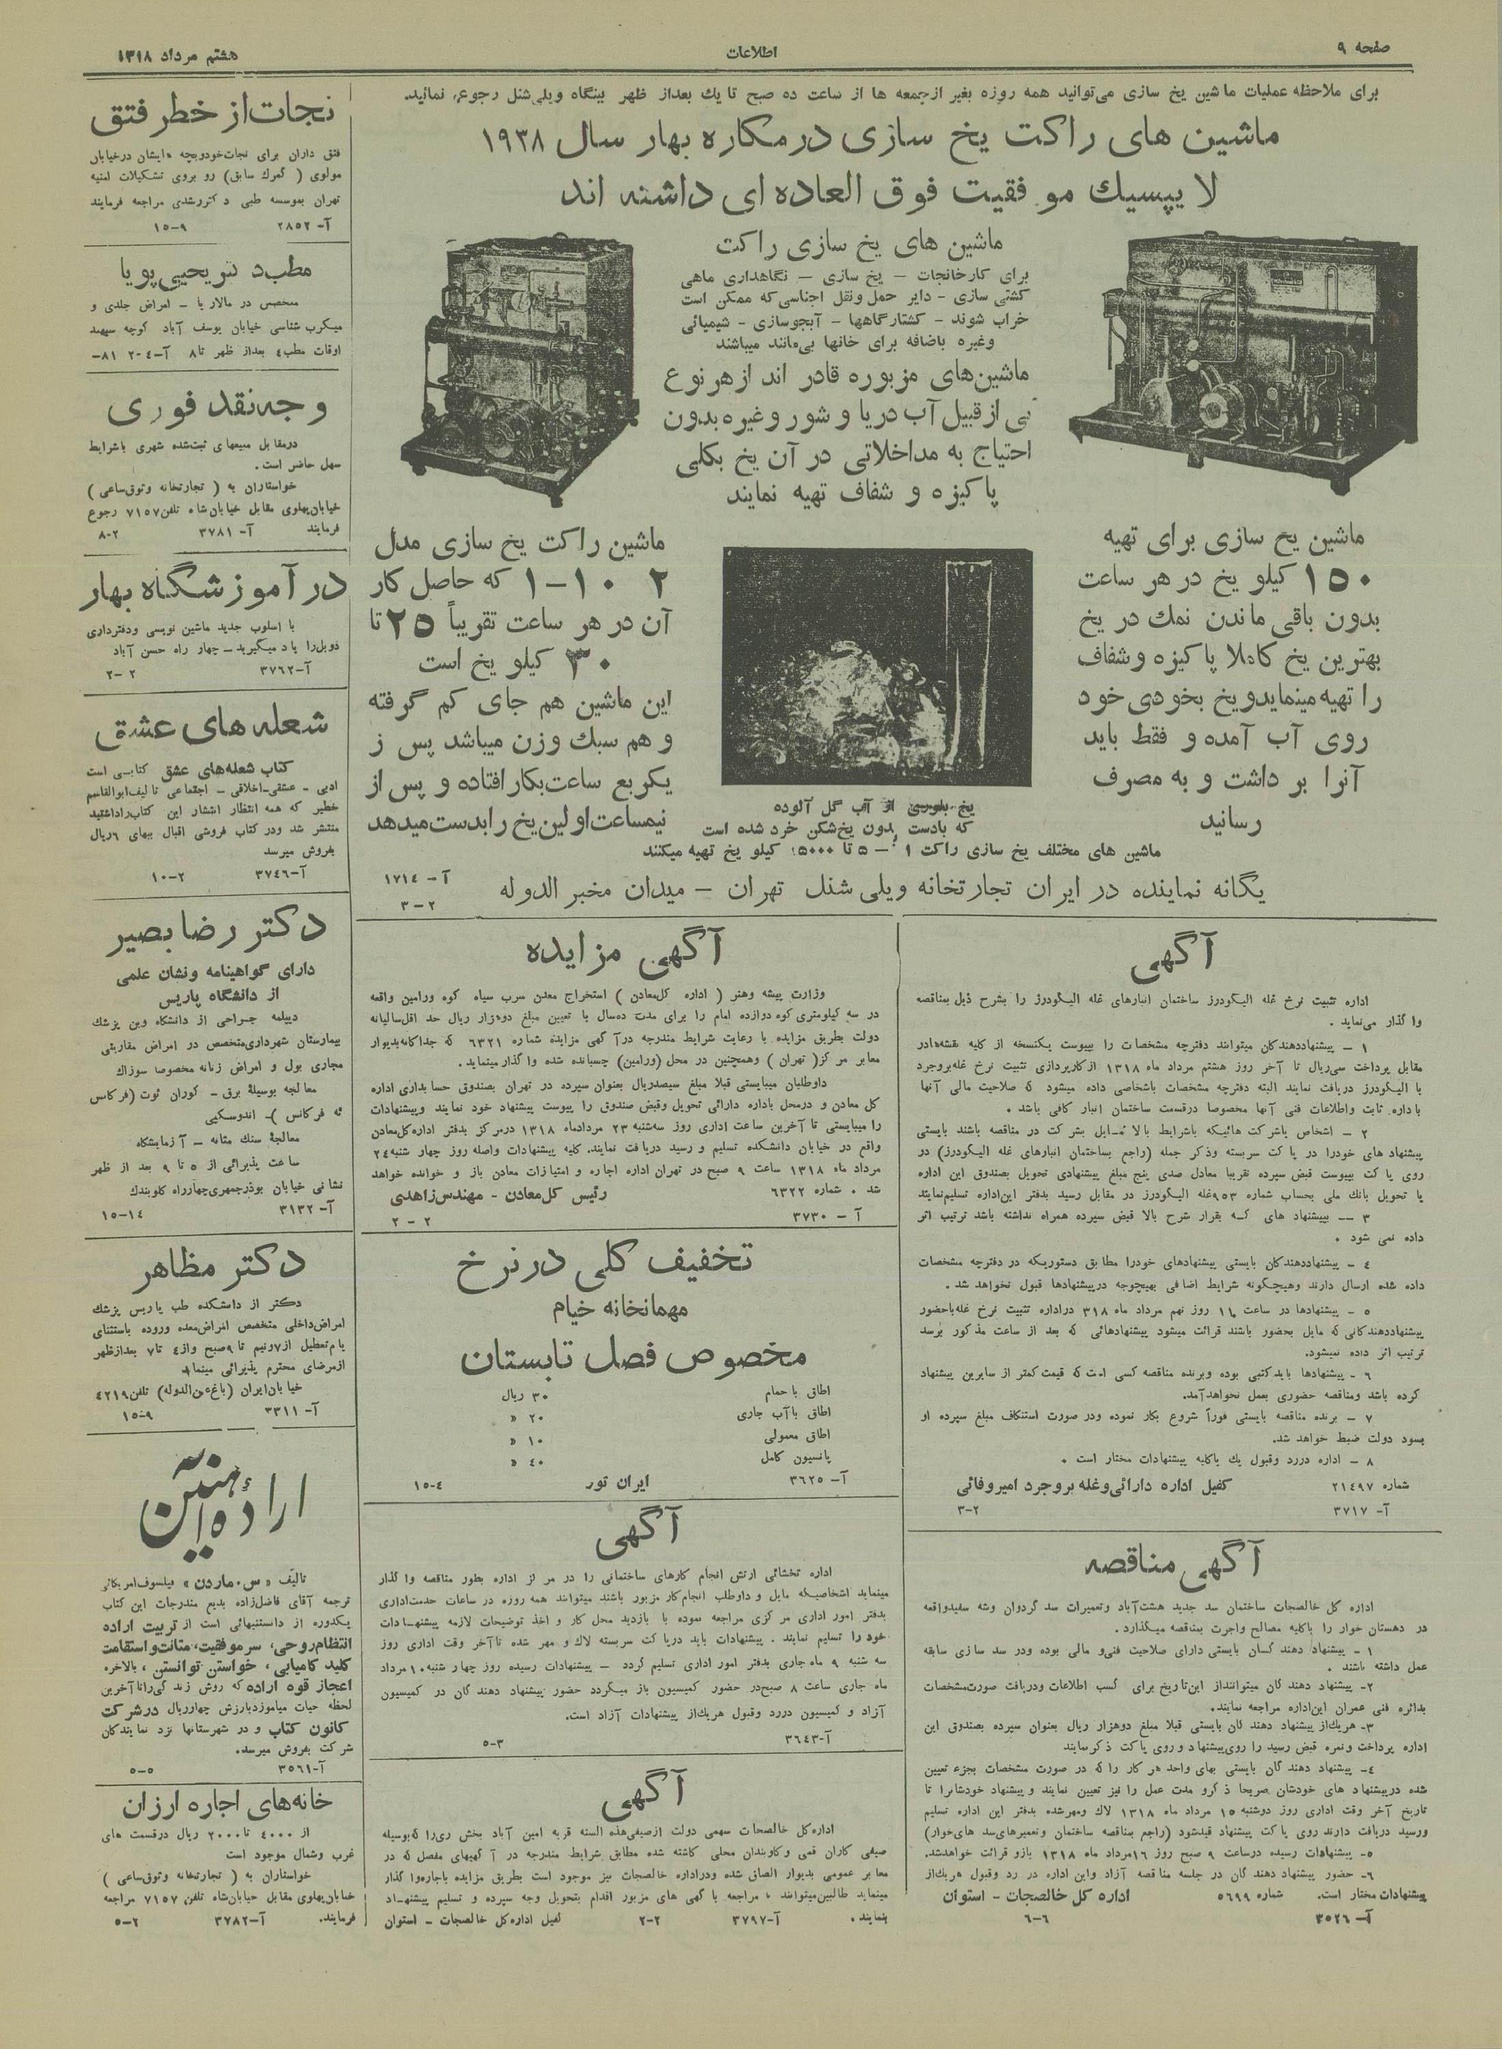 صفحه ۹
اطلاعات
هشتم مرداد ۱۳۱۸
برای ملاحظه عملیات ماشین یخ سازی می‌توانید همه روزه بغیر ازجمعه ها از ساعت ده صبح تا یك بعداز ظهر ببنگاه ویلی‌شنل رجوع نمائید.
ماشین های راکت یخ سازی درمکاره بهار سال ۱۹۳۸
لایپسیك موفقیت فوق العاده ای داشته اند
ماشین های یخ سازی راکت
برای کارخانجات — یخ سازی — نگاهداری ماهی
کشتی سازی - دایر حمل ونقل اجناسی‌که ممکن است
خراب شوند - کشتارگاهها - آبجوسازی - شیمیائی
وغیره باضافه برای خانها بی‌مانند میباشند
ماشین‌های مزبوره قادر اند ازهر نوع
بی ازقبیل آب دریا و شور وغیره بدون
احتیاج به مداخلاتی در آن یخ بکلی
پاکیزه و شفاف تهیه نمایند
ماشین یخ سازی برای تهیه
۱۵۰ کیلو یخ در هر ساعت
بدون باقی ماندن نمك در یخ
بهترین یخ کاملا پاکیزه وشفاف
را تهیه مینماید‌ویخ بخودی خود
روی آب آمده و فقط باید
آنرا بر داشت و به مصرف
رسانید
یخ بلوری از آب گل آلوده
که بادست بدون یخ‌شکن خرد شده است
ماشین راکت یخ سازی مدل
۲ ۱۰-۱ که حاصل کار
آن در هر ساعت تقریباً ۲۵ تا
۳۰ کیلو یخ است
این ماشین هم جای کم گرفته
و هم سبك وزن میباشد پس ز
یکربع ساعت بکار افتاده و پس از
نیمساعت اولین یخ را بدست میدهد
ماشین های مختلف یخ سازی راکت کیلو یخ تهیه میکنند
یگانه نماینده در ایران تجارتخانه ویلی شنل تهران — میدان مخبر الدوله
آ- ۱۷۱٤
۳-۲
آگهی
اداره تثبیت نرخ غله الیگودرز ساختمان انبارهای غله الیگودرز را بشرح ذیل بمناقصه
واگذار می‌نماید .
۱ — پیشنهاددهندکان میتوانند دفترچه مشخصات را بپیوست یکنسخه از کلیه نقشه‌هادر
مقابل پرداخت سی‌ریال تا آخر روز هشتم مرداد ماه ۱۳۱۸ ازکارپردازی تثبیت نرخ غله‌بروجرد
یا الیگودرز دریافت نمایند البته دفترچه مشخصات باشخاصی داده میشود که صلاحیت مالی آنها
باداره ثابت واطلاعات فنی آنها مخصوصا درقسمت ساختمان انبار کافی باشد .
۲ — اشخاص یاشرکت هائیکه باشرایط بالا تمایل بشرکت در مناقصه باشند بایستی
پیشنهاد های خودرا در پاکت سربسته وذکر جمله (راجع بساختمان انبارهای غله الیگودرز) در
روی پاکت بپیوست قبض سپرده تقریبا معادل صدی پنج مبلغ پیشنهادی تحویل بصندوق این اداره
یا تحویل بانك ملی بحساب شماره ۹۵۳غله الیگودرز در مقابل رسید بدفتر این‌اداره تسلیم‌نمایند
۳ — بپیشنهاد های که بقرار شرح بالا قبض سپرده همراه نداشته باشد ترتیب اثر
داده نمی شود .
٤ — پیشنهاددهندکان بایستی پیشنهادهای خودرا مطابق دستوریکه در دفترچه مشخصات
داده شده ارسال دارند وهیچگونه شرایط اضافی بهیچوجه درپیشنهادها قبول نخواهد شد .
۵ — پیشنهادها در ساعت ۱۱ روز نهم مرداد ماه ۳۱۸ دراداره تثبیت نرخ غله‌باحضور
پیشنهاددهندکانی که مایل بحضور باشند قرائت میشود پیشنهادهائی که بعد از ساعت مذکور برسد
ترتیب اثر داده نمیشود.
۶ - پیشنهادها باید کتبی بوده وبرنده مناقصه کسی است که قیمت کمتر از سایرین پیشنهاد
کرده باشد ومناقصه حضوری بعمل نخواهدآمد.
۷ — برنده مناقصه بایستی فوراً شروع بکار نموده ودر صورت استنکاف مبلغ سپرده او
بسود دولت ضبط خواهد شد.
۸ — اداره دررد وقبول یك یاکلیه پیشنهادات مختار است .
شماره ۲۱٤۹۷ کفیل اداره دارائی‌وغله بروجرد امیروفائی
آ- ۳۷۱۷ ۳-۲
آگهی مناقصه
اداره کل خالصجات ساختمان سد جدید هشت‌آباد وتعمیرات سد گردوان وشه سفیدواقعه
در دهستان خوار را باکلیه مصالح واجرت بمناقصه میگذارد .
۱ — پیشنهاد دهند کسان بایستی دارای صلاحیت فنی‌و مالی بوده ودر سد سازی سابقه
عمل داشته باشند .
۲- پیشنهاد دهند گان میتوانند‌از این‌تاریخ برای کسب اطلاعات ودریافت صورت‌مشخصات
بدائره فنی عمران این‌اداره مراجعه نمایند.
۳- هریك‌از پیشنهاد دهند گان بایستی قبلا مبلغ دوهزار ریال بعنوان سپرده بصندوق این
اداره پرداخت ونمره قبض رسید را روی‌پیشنهاد و روی پاکت ذکرنمایند
٤- پیشنهاد دهند گان بایستی بهای واحد هر کار را که در صورت مشخصات بجزء تعیین
شده درپیشنهاد های خودشان صریحا ذکرو مدت عمل را نیز تعیین نمایند و پیشنهاد خودشانرا تا
تاریخ آخر وقت اداری روز دوشنبه ۱۵ مرداد ماه ۱۳۱۸ لاك ومهرشده بدفتر این اداره تسلیم
ورسید دریافت دارند روی پاکت پیشنهاد قیدشود (راجع بمناقصه ساختمان وتعمیرهای‌سد های‌خوار)
۵- پیشنهادات رسیده درساعت ۹ صبح روز ۱۶مرداد ماه ۱۳۱۸ بازو قرائت خواهدشد.
۶- حضور پیشنهاد دهند گان در جلسه مناقصه آزاد واین اداره در رد وقبول هریك‌از
پیشنهادات مختار است. شماره ۵۶۹۹ اداره کل خالصجات - استوان
آ- ۳۵۲۶ ۶-۶
آگهی مزایده
وزارت پیشه وهنر ( اداره کل‌معادن ) استخراج معدن سرب سیاه کوه ورامین واقعه
در سه کیلومتری کوه دوازده امام را برای مدت ده‌سال با تعیین مبلغ دوهزار ریال حد اقل‌سالیانه
دولت بطریق مزایده با رعایت شرایط مندرجه درآگهی مزایده شماره ۶۳۲۱ که جداگانه‌بدیوار
معابر مرکز( تهران ) وهمچنین در محل (ورامین) چسبانده شده واگذار مینماید.
داوطلبان میبایستی قبلا مبلغ سیصدریال بعنوان سپرده در تهران بصندوق حسابداری اداره
کل معادن و درمحل باداره دارائی تحویل وقبض صندوق را پیوست پیشنهاد خود نمایند وپیشنهادات
را میبایستی تا آخرین ساعت اداری روز سه‌شنبه ۲۳ مردادماه ۱۳۱۸ درمرکز بدفتر اداره‌کل‌معادن
واقع در خیابان دانشکده تسلیم و رسید دریافت نمایند. کلیه پیشنهادات واصله روز چهار شنبه۲٤
مرداد ماه ۱۳۱۸ ساعت ۹ صبح در تهران اداره اجاره و امتیازات معادن باز و خوانده خواهد
شد . شماره ۶۳۲۲ رئیس کل‌معادن - مهندس‌زاهدی
آ — ۳۷۳۰ ۲-۲
تخفیف کلی درنرخ
مهمانخانه خیام
مخصوص فصل تابستان
اطاق با حمام ۳۰ ریال
اطاق باآب جاری ۲۰ «
اطاق معمولی ۱۰ «
پانسیون کامل ٤۰ «
آ- ۳۶۲۵ ایران تور ۱۵-٤
آگهی
اداره تخشائی ارتش انجام کارهای ساختمانی را در مرکز اداره بطور مناقصه واگذار
مینماید اشخاصیکه مایل و داوطلب انجام‌کار مزبور باشند میتوانند همه روزه در ساعات خدمت‌اداری
بدفتر امور اداری مرکزی مراجعه نموده با بازدید محل کار و اخذ توضیحات لازمه پیشنهادات
خود را تسلیم نمایند . پیشنهادات باید درپاکت سربسته لاك و مهر شده تاآخر وقت اداری روز
سه شنبه ۹ ماه جاری بدفتر امور اداری تسلیم گردد — پیشنهادات رسیده روز چهار شنبه۱۰مرداد
ماه جاری ساعت ۸ صبح‌در حضور کمیسیون باز میگردد حضور پیشنهاد دهند گان در کمیسیون
آزاد و کمیسیون دررد وقبول هریك‌از پیشنهادات آزاد است.
آ-۳۶٤۳ ۵-۳
آگهی
اداره‌کل خالصجات سهمی دولت ازصیفی‌هذه السنه قریه امین آباد بخش ری‌را که‌بوسیله
صیفی کاران قمی و کاوبندان محلی کاشته شده مطابق شرایط مندرجه در آگهیهای مفصل که در
معابر عمومی بدیوار الصاق شده ودراداره خالصجات نیز موجود است بطریق مزایده باجاره‌واگذار
مینماید طالبین‌میتوانند با مراجعه بآگهی های مزبور اقدام بتحویل وجه سپرده و تسلیم پیشنهاد
بنمایند . آ-۳۷۹۷ ۲-۲ کفیل اداره‌کل خالصجات - استوان
نجات‌از خطر فتق
فتق داران برای نجات‌خودوبچه هایشان درخیابان
مولوی ( گمرك سابق) رو بروی تشکیلات امنیه
تهران بموسسه طبی دکتررشدی مراجعه فرمایند
آ- ۲۸۵۲ ۱۵-۹
مطب‌دکتریحیی‌پویا
متخصص در مالاریا — امراض جلدی و
میکرب شناسی خیابان یوسف آباد کوچه سپهبد
اوقات مطب٤ بعداز ظهر تا۸
وجه‌نقد فوری
درمقابل مبیعهای ثبت‌شده شهری باشرایط
سهل حاضر است .
خواستاران به ( تجارتخانه وثوق‌ساعی )
خیابان‌پهلوی مقابل خیابان‌شاه تلفن۷۱۵۷ رجوع
فرمایند آ- ۳۷۸۱ ۸-۲
درآموزشگاه بهار
با اسلوب جدید ماشین نویسی ودفترداری
دوبل‌را یاد میگیرید — چهار راه حسن آباد
آ-۳۷۶۲ ۲-۲
شعله های عشق
کتاب شعله‌های عشق کتابی است
ادبی - عشقی-اخلاقی - اجتماعی تالیف‌ابوالقاسم
خطیر که همه انتظار انتشار این کتاب‌راداشتید
منتشر شد ودر کتاب فروشی اقبال ببهای ۶ریال
بفروش میرسد
آ-۳۷٤۶ ۱۰-۲
دکتر رضا بصیر
دارای گواهینامه ونشان علمی
از دانشگاه پاریس
دیپلمه جراحی از دانشگاه وین پزشك
بیمارستان شهرداری‌متخصص در امراض مقاربتی
مجاری بول و امراض زنانه مخصوصا سوزاك
معالجه بوسیلهٔ برق — کوران ئوت (فرکانس
ئه فرکانس )- اندوسکپی
معالجهٔ سنك مثانه — آزمایشگاه
ساعت پذیرائی از ۵ تا ۹ بعد از ظهر
نشانی خیابان بوذرجمهری‌چهارراه گلوبندك
آ- ۳۱۳۲ ۱۵-۱٤
دکتر مظاهر
دکتر از دانشکده طب پاریس پزشك
امراض‌داخلی متخصص امراض‌معده وروده باستثنای
ایام‌تعطیل از۷ونیم تا ۹صبح واز٤ تا۷ بعدازظهر
ازمرضای محترم پذیرائی مینماید
خیابان‌ایران (باغ‌عین‌الدوله) تلفن٤۲۱۹
آ- ۳۳۱۱ ۱۵-۹
ارادهٔ آهنین
تالیف « س.ماردن » فیلسوف‌امریکائی
ترجمه آقای فاضل‌زاده بدیع مندرجات این کتاب
یکدوره از دانستنیهائی است از تربیت اراده
انتظام‌روحی، سرموفقیت، متانت‌واستقامت
کلید کامیابی، خواستن توانستن، بالاخره
اعجاز قوه اراده که روش زندگی‌راتاآخرین
لحظه حیات میاموزد‌بارزش چهارریال درشرکت
کانون کتاب و در شهرستانها نزد نمایندکان
شرکت بفروش میرسد.
آ-۳۵۶۱ ۵-۵
خانه‌های اجاره ارزان
از ٤۰۰۰ تا ۲۰۰۰ ریال درقسمت های
غرب وشمال موجود است
خواستاران به ( تجارتخانه وثوق‌ساعی )
خیابان‌پهلوی مقابل خیابان‌شاه تلفن ۷۱۵۷ مراجعه
فرمایند. آ-۳۷۸۲ ۵-۲